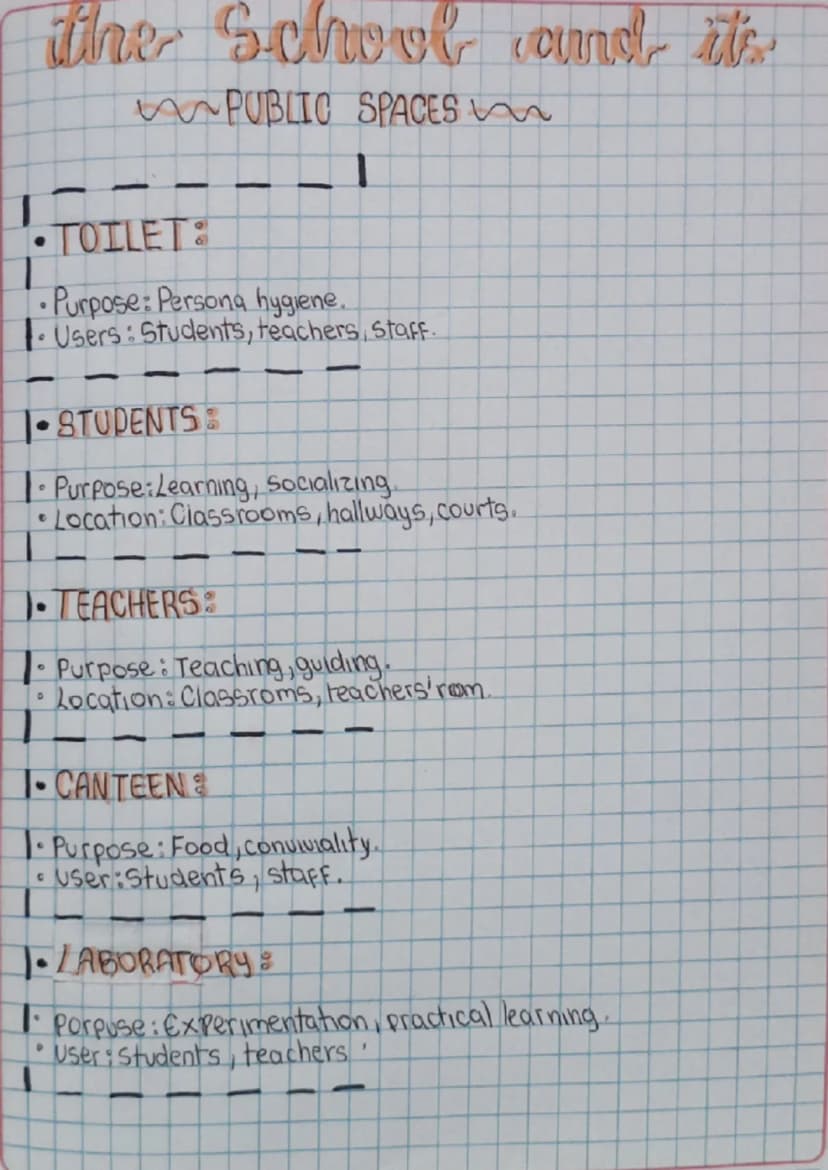 the School and its
PUBLIC SPACES
• TOILET:
• Purpose: Persona hygiene.
• Users: Students, teachers, staff.
• STUDENTS:
• Purpose: Learning, socializing.
• Location: Classrooms, hallways, courts.
• TEACHERS:
• Purpose: Teaching, guiding.
• Location: Classroms, teachers' room.
• CANTEEN:
• Purpose: Food, conviviality.
• User: Students, staff.
• LABORATORY:
• Porpuse: Experimentation, practical learning.
• User: Students, teachers